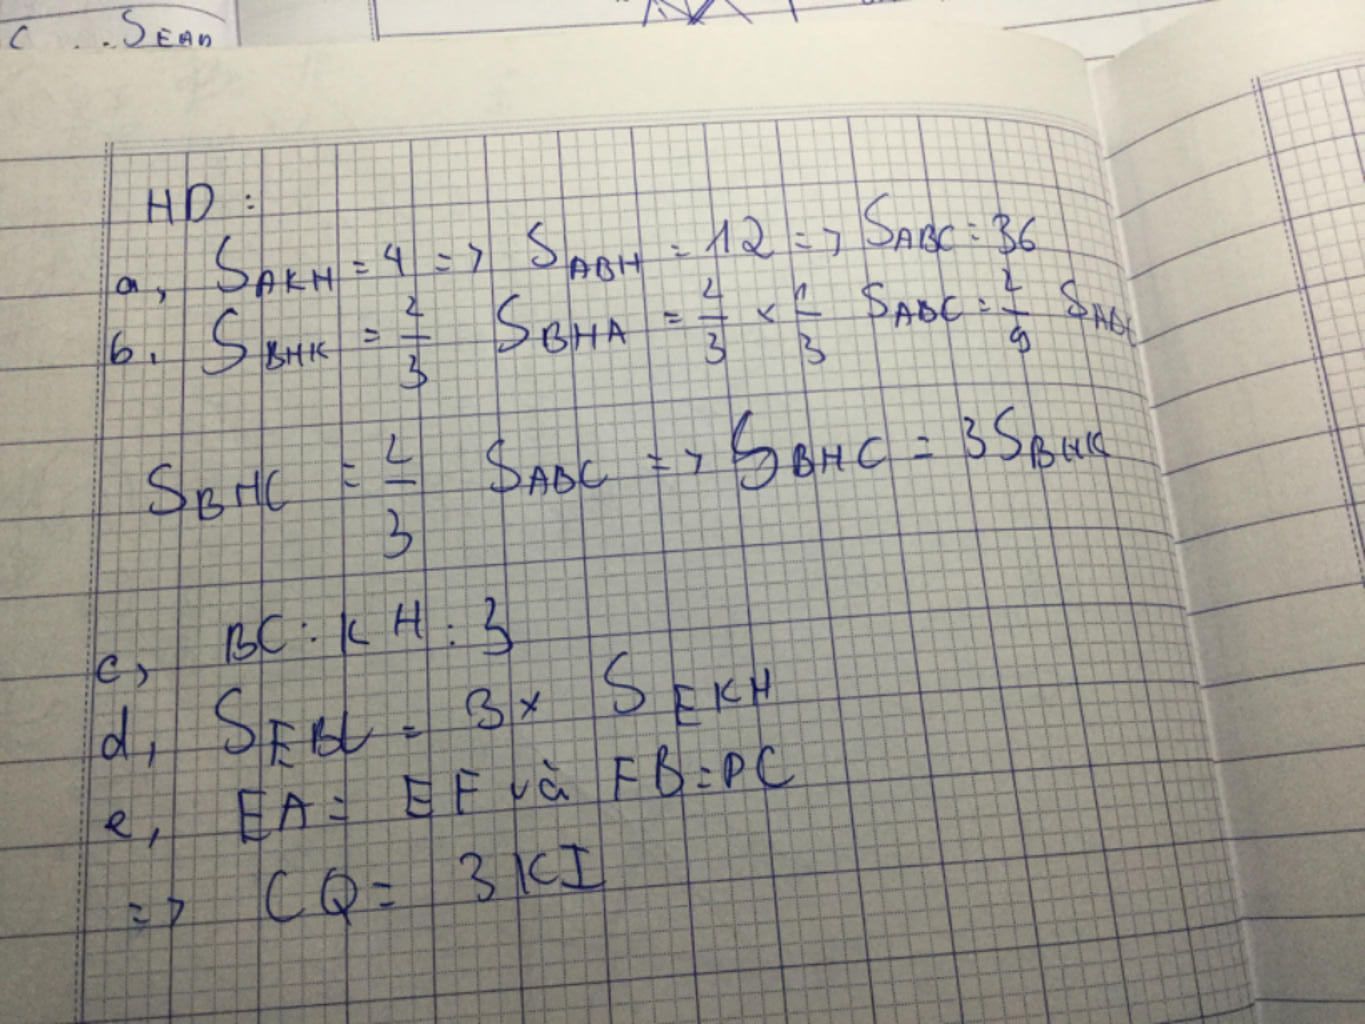 C ... SEAD
HD :
a, SAKH = 4 => SABH = 12 => SABC = 36
b. SBHK = 2/3 SBHA = 2/3 × 1/3 SABC = 2/9 SABC
SBHC = 2/3 SABC => SBHC = 3SBHK
c, BC : KH : 3
d, SEBC = 3 × SEKH
e, EA = EF và FB = PC
=> CQ = 3KI